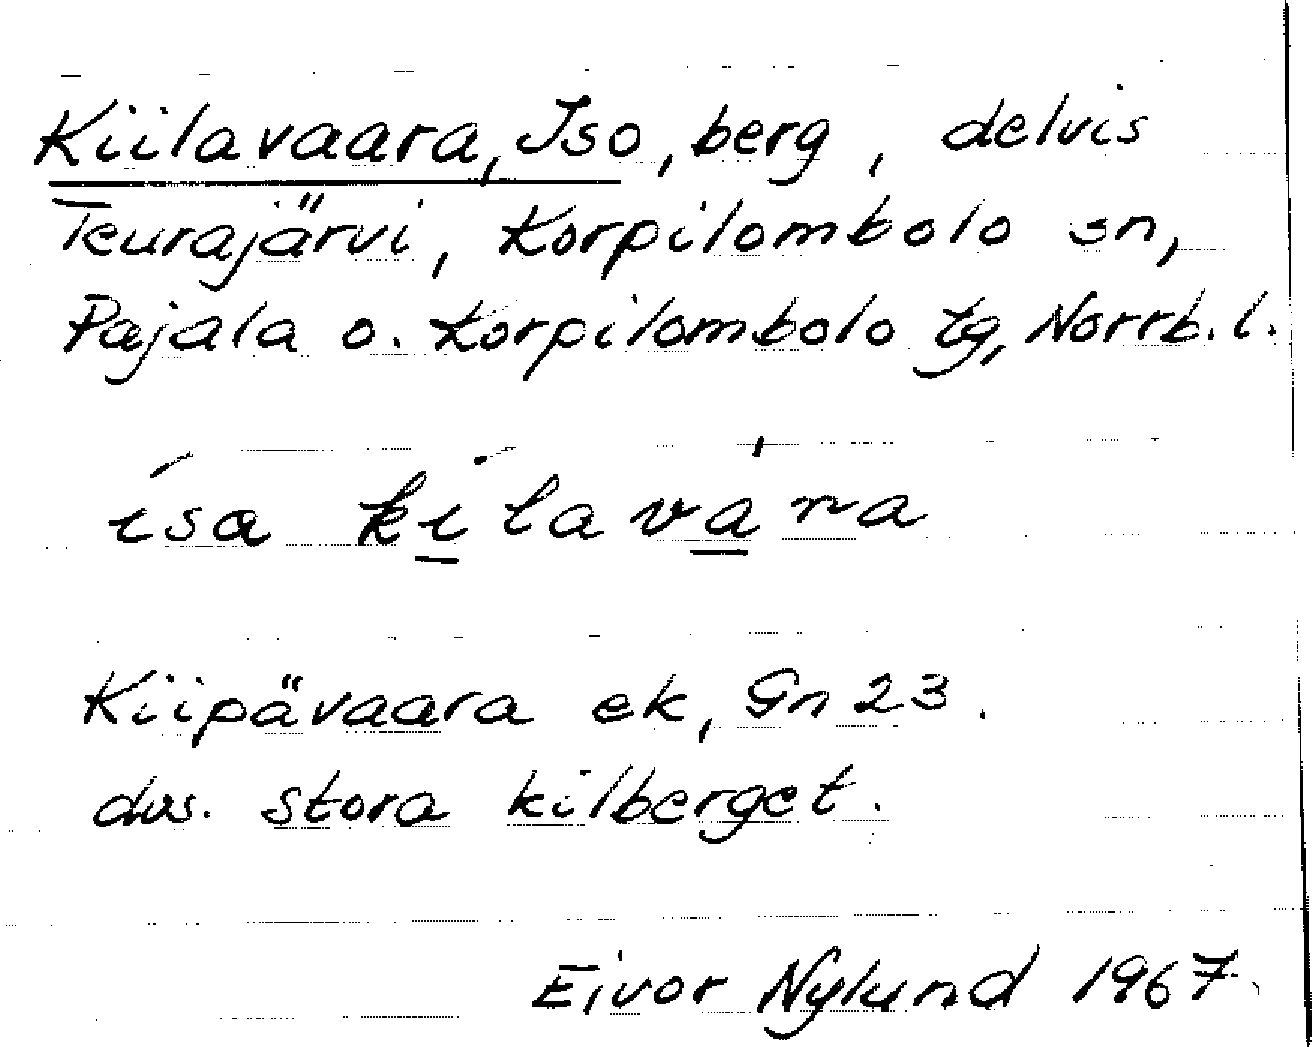 Kiilavaara, Iso, berg, delvis
Teurajärvi, Korpilombolo sn,
Pajala o. Korpilombolo tg, Norrb. l.
ísa ki̲lava̲ra
Kiipävaara ek, Gn 23.
dvs. stora kilberget.
Eivor Nylund 1967.